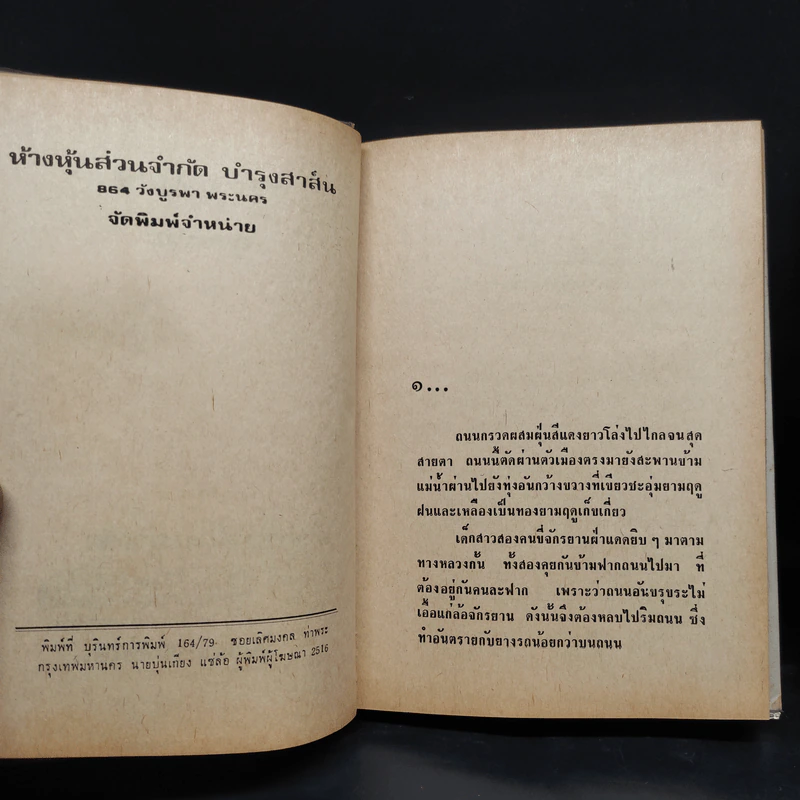 ห้างหุ้นส่วนจำกัด บำรุงสาส์น
864 วังบูรพา พระนคร
จัดพิมพ์จำหน่าย
พิมพ์ที่ บุรินทร์การพิมพ์ 164/79 ซอยเลิศมงคล ท่าพระ
กรุงเทพมหานคร นายบุ่นเกียง แซ่ล้อ ผู้พิมพ์ผู้โฆษณา 2516
๑...
ถนนกรวดผสมฝุ่นสีแดงยาวโล่งไปไกลจนสุด
สายตา ถนนนี้ตัดผ่านตัวเมืองตรงมายังสะพานข้าม
แม่น้ำผ่านไปยังทุ่งอันกว้างขวางที่เขียวชะอุ่มยามฤดู
ฝนและเหลืองเป็นทองยามฤดูเก็บเกี่ยว
เด็กสาวสองคนขี่จักรยานฝ่าแดดยิบ ๆ มาตาม
ทางหลวงกั้น ทั้งสองคุยกันข้ามฟากถนนไปมา ที่
ต้องอยู่กันคนละฟาก เพราะว่าถนนอันขรุขระไม่
เอื้อแก่ล้อจักรยาน ดังนั้นจึงต้องหลบไปริมถนน ซึ่ง
ทำอันตรายกับยางรถน้อยกว่าบนถนน